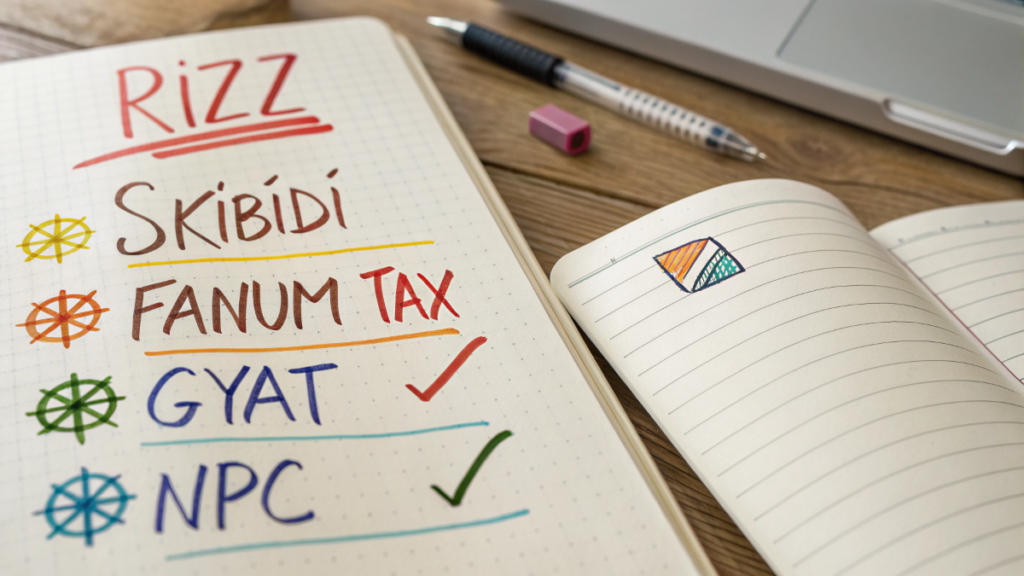 RiZZ
SKiBiDi
FANUM TAX
GYAT
NPC